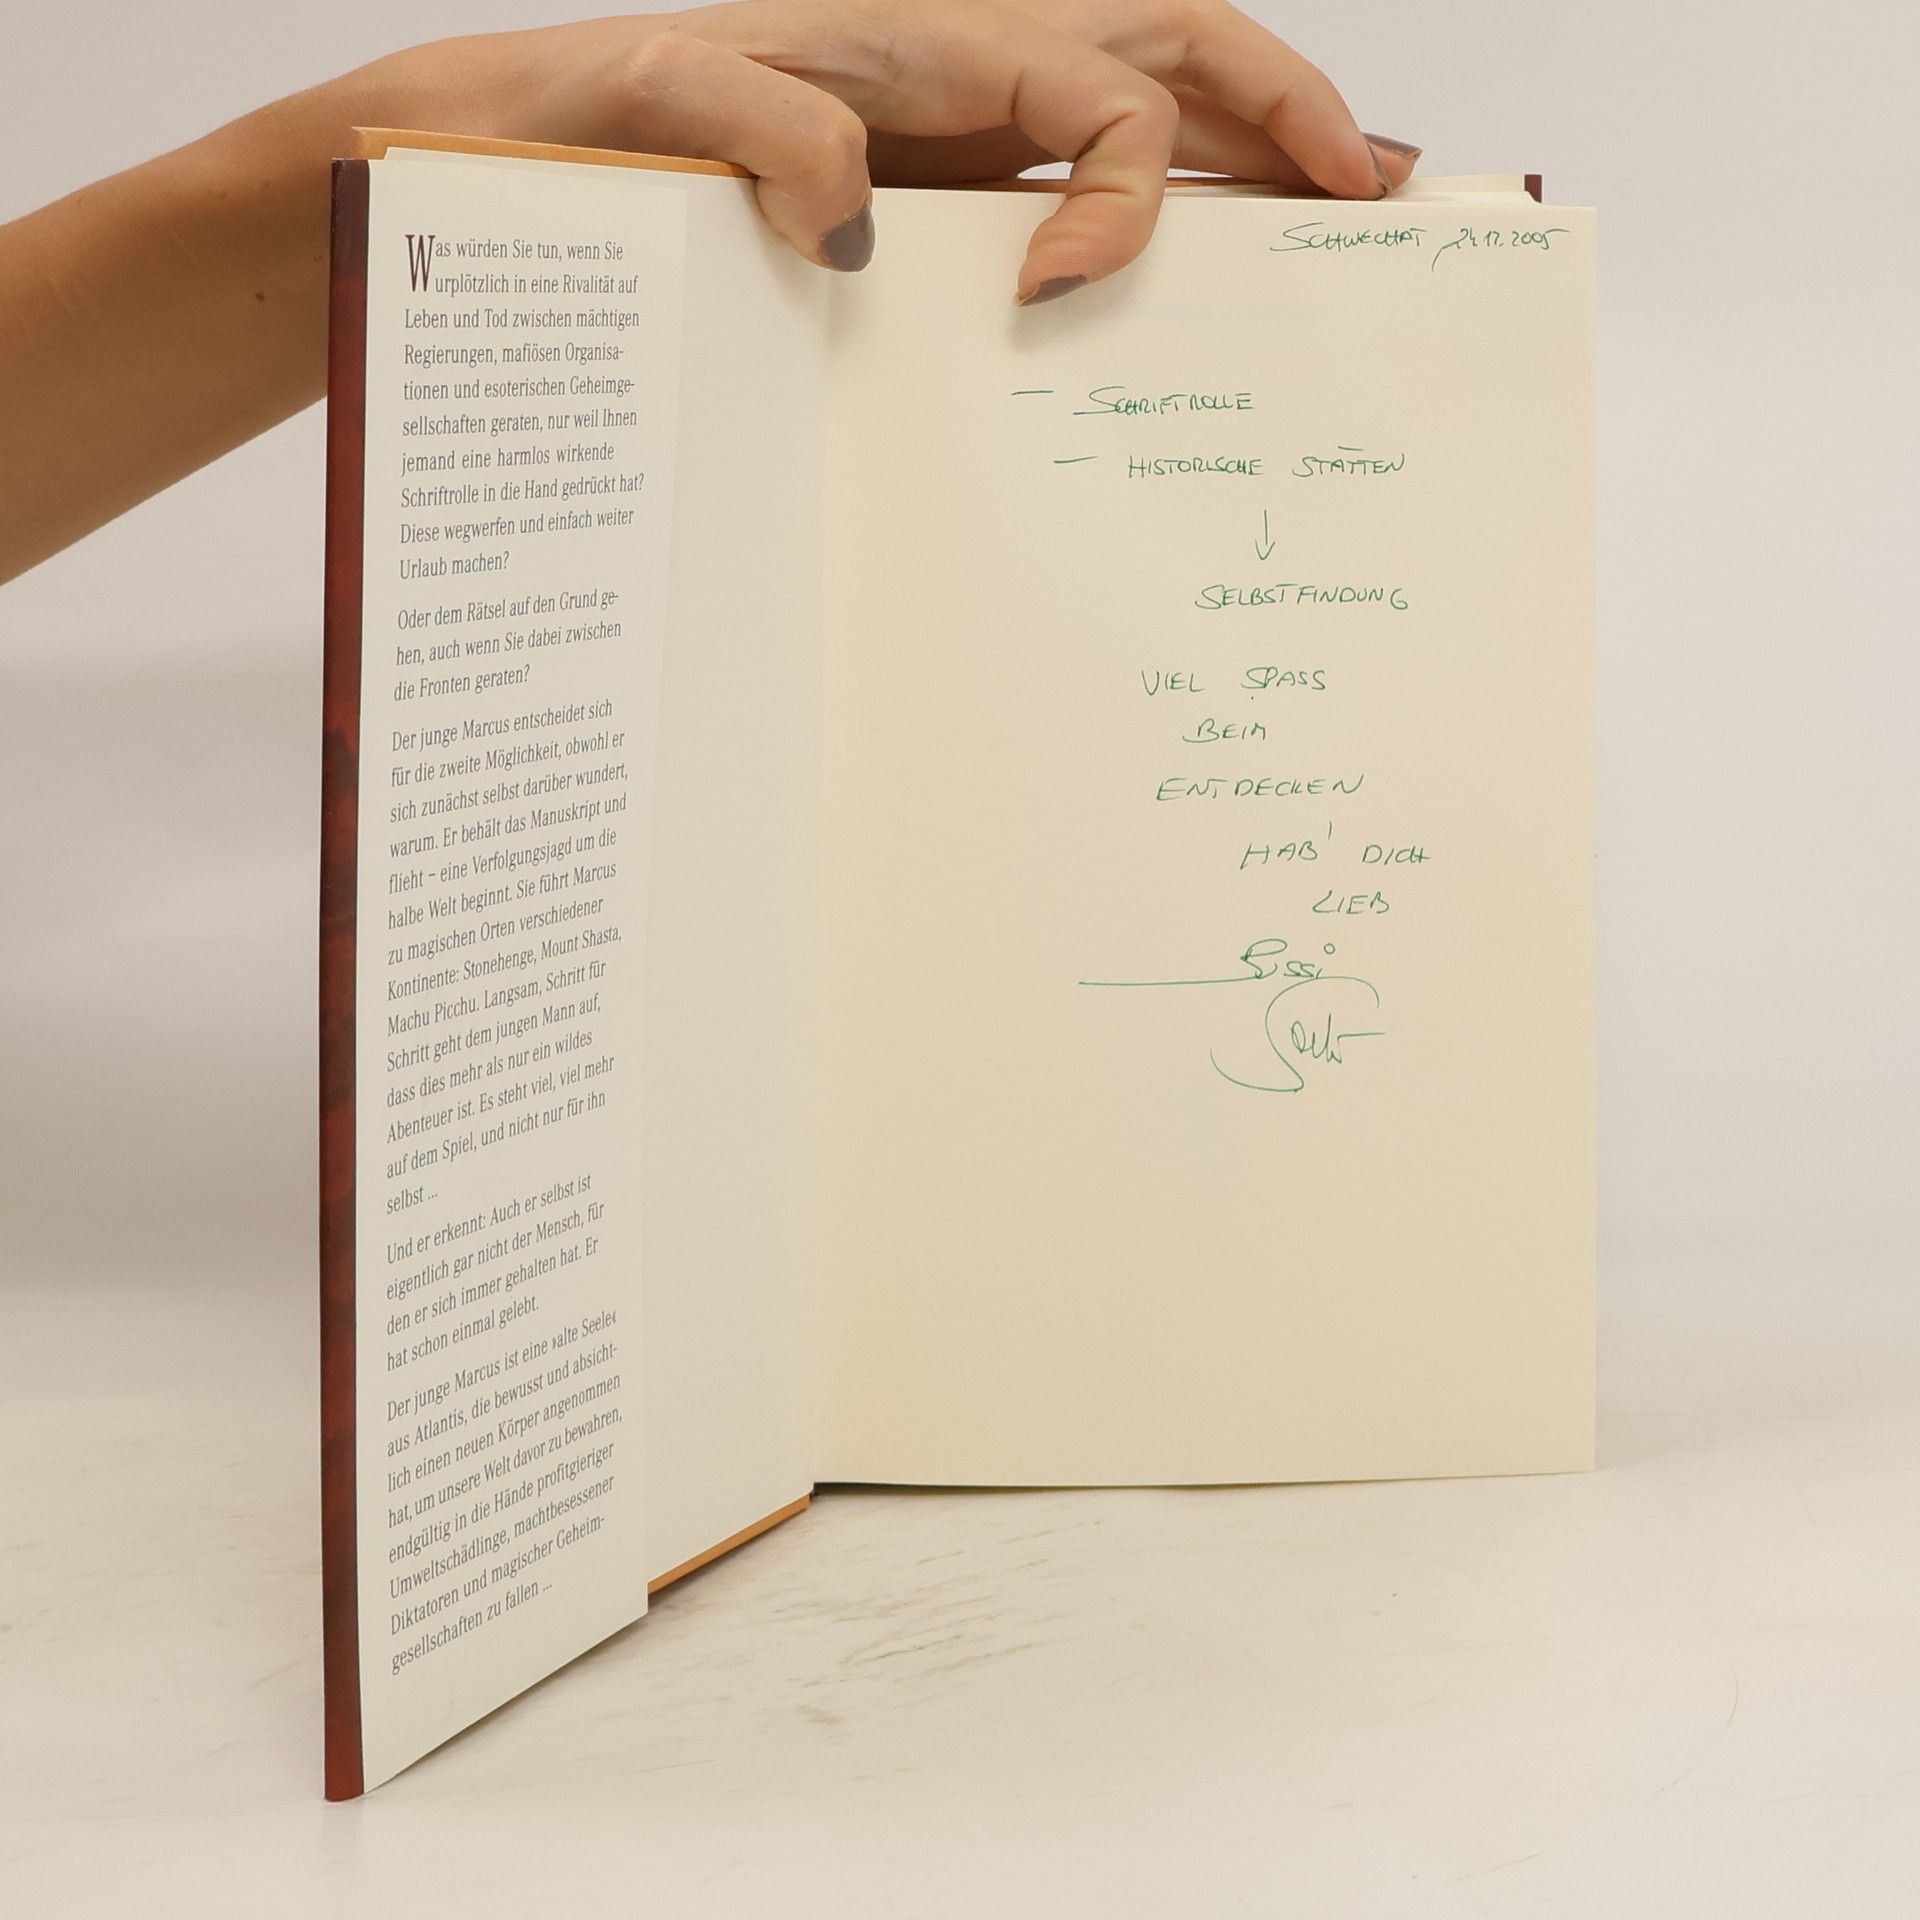 Was würden Sie tun, wenn Sie
urplötzlich in eine Rivalität auf
Leben und Tod zwischen mächtigen
Regierungen, mafiösen Organisa-
tionen und esoterischen Geheimge-
sellschaften geraten, nur weil Ihnen
jemand eine harmlos wirkende
Schriftrolle in die Hand gedrückt hat?
Diese wegwerfen und einfach weiter
Urlaub machen?
Oder dem Rätsel auf den Grund ge-
hen, auch wenn Sie dabei zwischen
die Fronten geraten?
Der junge Marcus entscheidet sich
für die zweite Möglichkeit, obwohl er
sich zunächst selbst darüber wundert,
warum. Er behält das Manuskript und
flieht – eine Verfolgungsjagd um die
halbe Welt beginnt. Sie führt Marcus
zu magischen Orten verschiedener
Kontinente: Stonehenge, Mount Shasta,
Machu Picchu. Langsam, Schritt für
Schritt geht dem jungen Mann auf,
dass dies mehr als nur ein wildes
Abenteuer ist. Es steht viel, viel mehr
auf dem Spiel, und nicht nur für ihn
selbst ...
Und er erkennt: Auch er selbst ist
eigentlich gar nicht der Mensch, für
den er sich immer gehalten hat. Er
hat schon einmal gelebt.
Der junge Marcus ist eine »alte Seele«
aus Atlantis, die bewusst und absicht-
lich einen neuen Körper angenommen
hat, um unsere Welt davor zu bewahren,
endgültig in die Hände profitgieriger
Umweltschädlinge, machtbesessener
Diktatoren und magischer Geheim-
gesellschaften zu fallen ...
SCHWECHAT, 24.12.2005
– SCHRIFTROLLE
– HISTORISCHE STÄTTEN
↓
SELBSTFINDUNG
VIEL SPASS
BEIM
ENTDECKEN
HAB' DICH
LIEB